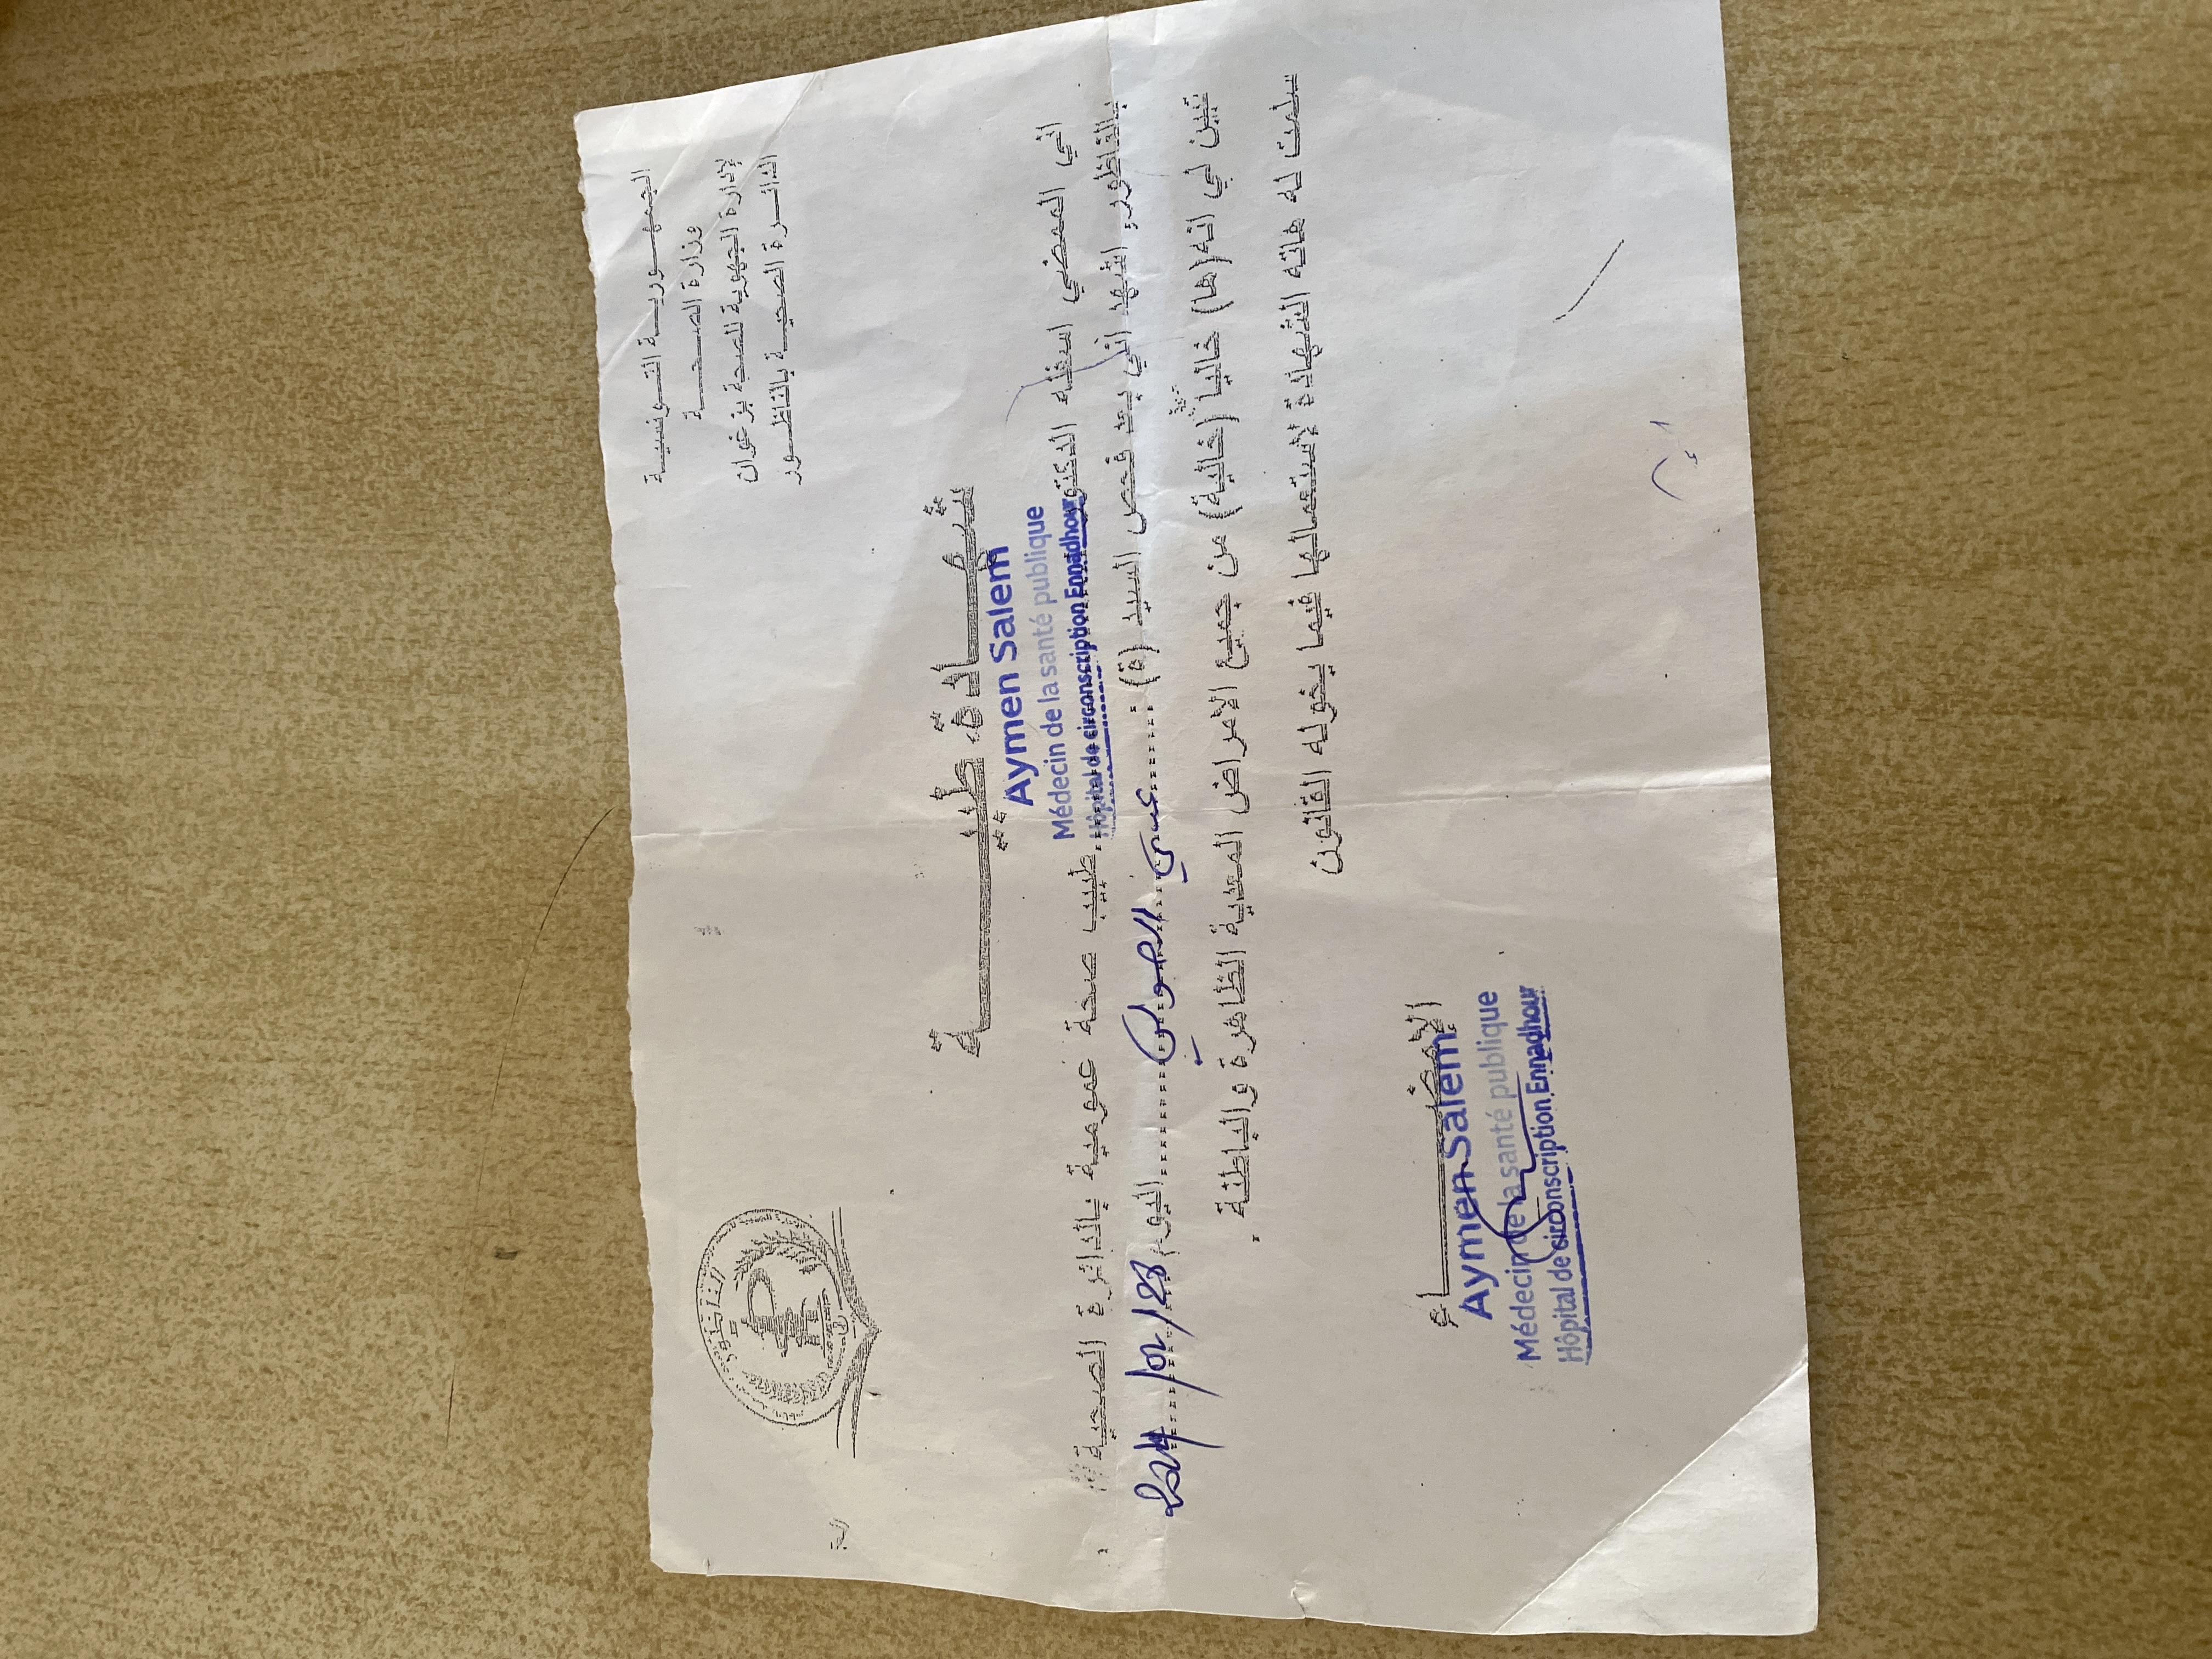 الجمهورية التونسية
وزارة الصحة
الإدارة الجهوية للصحة بزغوان
الدائرة الصحية بالناظور
شهادة طبية
Aymen Salem
Médecin de la santé publique
Hôpital de circonscription Ennadhour
اني الممضي اسفله الدكتور طبيب صحة عمومية بالدائرة الصحية
بالناظور اشهد اني بعد فحص السيد (ة) ............ اليوم 2024/02/23
تبين لي انه(ها) خاليا (خالية) من جميع الامراض المعدية الظاهرة والباطنة .
سلمت له هاته الشهادة لإستعمالها فيما يخوله القانون
الإمضاء
Aymen Salem
Médecin de la santé publique
Hôpital de circonscription Ennadhour